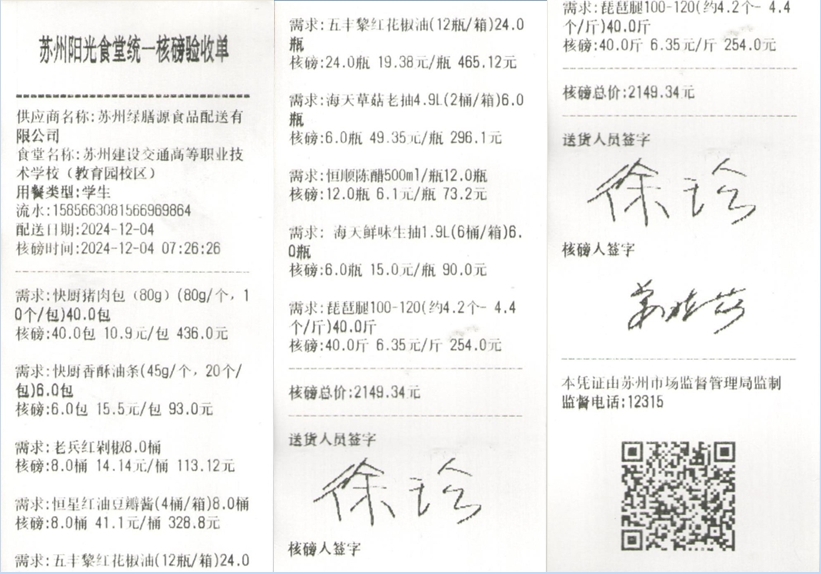 苏州阳光食堂统一核磅验收单
供应商名称:苏州绿膳源食品配送有
限公司
食堂名称:苏州建设交通高等职业技
术学校（教育园校区）
用餐类型:学生
流水:1585663081566969864
配送日期:2024-12-04
核磅时间:2024-12-04 07:26:26
需求:快厨猪肉包（80g）(80g/个，1
0个/包)40.0包
核磅:40.0包 10.9元/包 436.0元
需求:快厨香酥油条(45g/个，20个/
包)6.0包
核磅:6.0包 15.5元/包 93.0元
需求:老兵红剁椒8.0桶
核磅:8.0桶 14.14元/桶 113.12元
需求:恒星红油豆瓣酱(4桶/箱)8.0桶
核磅:8.0桶 41.1元/桶 328.8元
需求:五丰黎红花椒油(12瓶/箱)24.0
需求:五丰黎红花椒油(12瓶/箱)24.0
瓶
核磅:24.0瓶 19.38元/瓶 465.12元
需求:海天草菇老抽4.9L(2桶/箱)6.0
瓶
核磅:6.0瓶 49.35元/瓶 296.1元
需求:恒顺陈醋500ml/瓶12.0瓶
核磅:12.0瓶 6.1元/瓶 73.2元
需求: 海天鲜味生抽1.9L(6桶/箱)6.
0瓶
核磅:6.0瓶 15.0元/瓶 90.0元
需求:琵琶腿100-120(约4.2个- 4.4
个/斤)40.0斤
核磅:40.0斤 6.35元/斤 254.0元
核磅总价:2149.34元
送货人员签字
徐珍
核磅人签字
需求:琵琶腿100-120(约4.2个- 4.4
个/斤)40.0斤
核磅:40.0斤 6.35元/斤 254.0元
核磅总价:2149.34元
送货人员签字
徐珍
核磅人签字
本凭证由苏州市场监督管理局监制
监督电话:12315